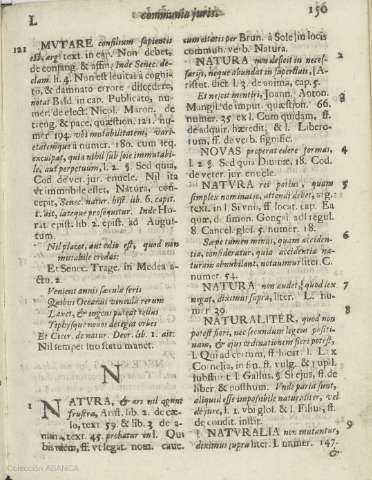 L
communia juris.
156
121
MVTARE consilium sapientis
est, arg. text. in cap. Non debet,
de consang. & affin. Inde Senec. de-
clam. 4. Non est levitas à cogni-
to, & damnato errore discedere,
notat Bald. in cap. Publicato, nu-
mer. de elect. Nicol. Maron. de
treug. & pace, quæstion. 121. nu-
mer. 194. ubi mutabilitatem, vari-
etatemque à numer. 180. cum seq.
exculpat, quia nihil sub sole immutabi-
le, aut perpetuum, l. 2. §. Sed quia,
Cod. de vet. jur. enucle. Nil ita
et immobile esset, Natura, con-
cepit, Senec. natur. hist. lib. 6. capit.
1. ait, lateque prosequutur. Inde Ho-
rat. epist. lib. 2. epist. ad Augus-
tum.
Nil placet, aut odio est, quod non
mutabile credas:
Et Senec. Trage. in Medea a-
cto. 2.
Venient annis sæcula seris
Quibus Oceanus vincula rerum
Laxet, & ingens pateat tellus
Tiphysque novos detegat orbes
Et Cicer. de natur. Deor. lib. 1. ait:
Nil semper suo statu manet.
N
1
NATVRA, & ars nil agunt
frustra, Arist. lib. 2. de cæ-
lo, text. 59. & lib. 3. de a-
nima, text. 45. probatur in l. Qui
bis idem, ff. vt legat. nom. cave.
cum altatis per Brun. à Sole in locis
commun. verb. Natura.
2
NATURA non deficit in neces-
sarijs, neque abundat in superfluis, [A-
ristot. dict. l. 3. de anima, cap. 5.
3
Et nejcit inventri, Joann. Anton.
Mangil. de imput. quæstion. 66.
numer. 25. ex l. Cum quidam, ff.
de adquir. hæredit. & l. Liber-
tum, ff. de verb. signific.
4
NOVAS properat edere formas,
l. 2. §. Sed quia Divinæ, 18. Cod.
de veter. jur. enucle.
5
NATVRA rei potius, quam
simplex nominatio, attendi debet, arg.
text. in l. Si vnis, ff. locat. cap. Ea
quæ, d. simon. Gonçal. ad l regul.
8. Cancel. glos. 5. numer. 18.
6
Sæpe tamen minus, quam acciden-
tia, consideratur, quia accidentia na-
turam abundant, notaumur liter. C.
numer. 54.
7
NATURA non audet, quod lex
negat, diximus supra, liter. L. nu-
mer. 39.
8
NATURALITER, quod non
potest fieri, nec secundum legem positi-
vam, & ejus ordinationem fieri potest,
l. Qui ad certum, ff. locat. l. Lex
Cornelia, in fin. ff. vulg. & pupil.
substitut. l. Gallus, §. Et ejus, ff. de
liber. & posthum. Unde paria sunt,
aliquid esse impossibile naturaliter, vel
de jure, l. 1. vbi glos. & l. Filius, ff.
de condit. instit.
9
NATVRALIA non mutantur,
diximus supra liter. I. numer. 147.
&
Colección ABANCA